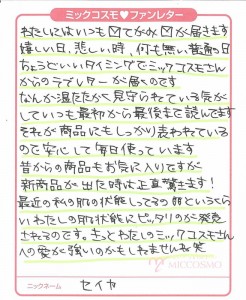 ミックコスモ♥ファンレター
わたしにはいつも☑てがみ☑が届きます
嬉しい日、悲しい時、何も無い普通の日
ちょうどいいタイミングでミックコスモさん
からのラブレターが届くのです
なんか温たたかく見守られている気が
していつも最初から最後まで読んでます
それが商品にもしっかり表われている
ので安心して毎日使っています
昔からの商品もお気に入りですが
新商品が出た時は正直驚きます!
最近の私の肌状態してる??というくら
いわたしの肌状態にピッタリのが発売
されてるのです。きっとわたしのミックコスモさん
への愛が強いのかもしれませんね笑
MICCOSMO
ニックネーム セイヤ